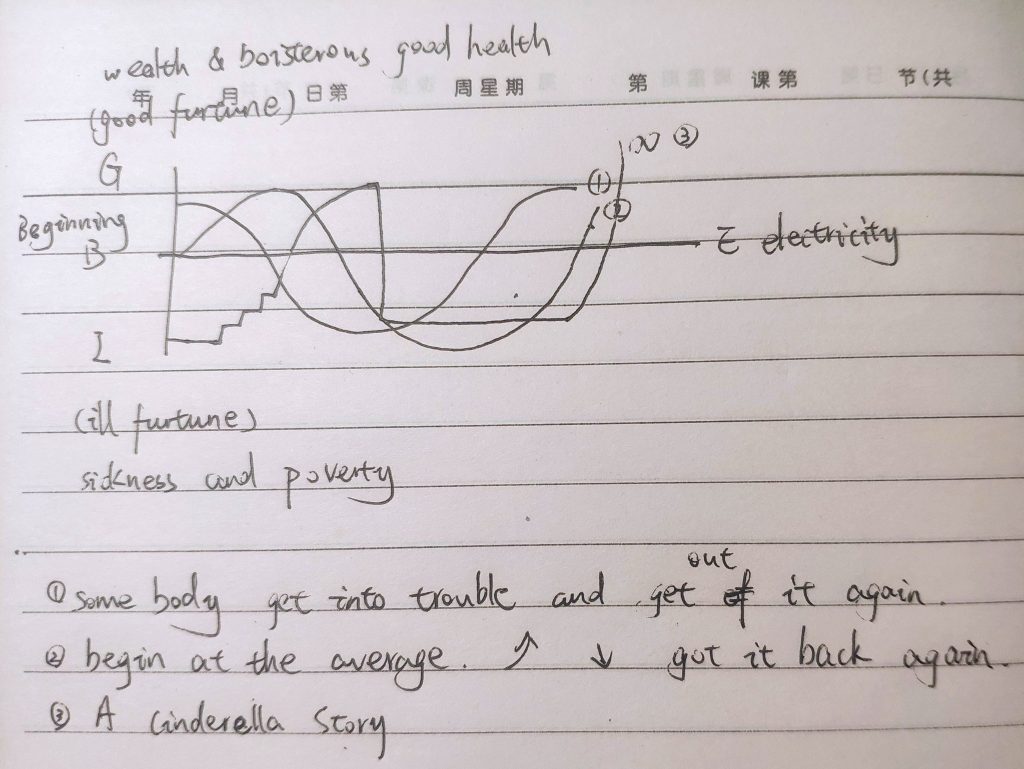 wealth & boisterous good health
年 月 日第 周星期 第 课第 节(共
(good furtune)
G
∞ ③
①
②
Beginning
B
E electricity
I
(ill furtune)
sickness and poverty
out
① some body get into trouble and get of it again.
② begin at the average. ↗ ↓ got it back again.
③ A Cinderella Story